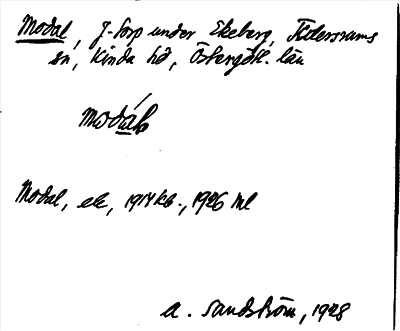 Modal, f. torp under Ekeberg, Tidersrums
sn, Kinda hd, Östergötl. län
modáls
Modal, ek, 1914 kb., 1926 ml
A. Sandström, 1928